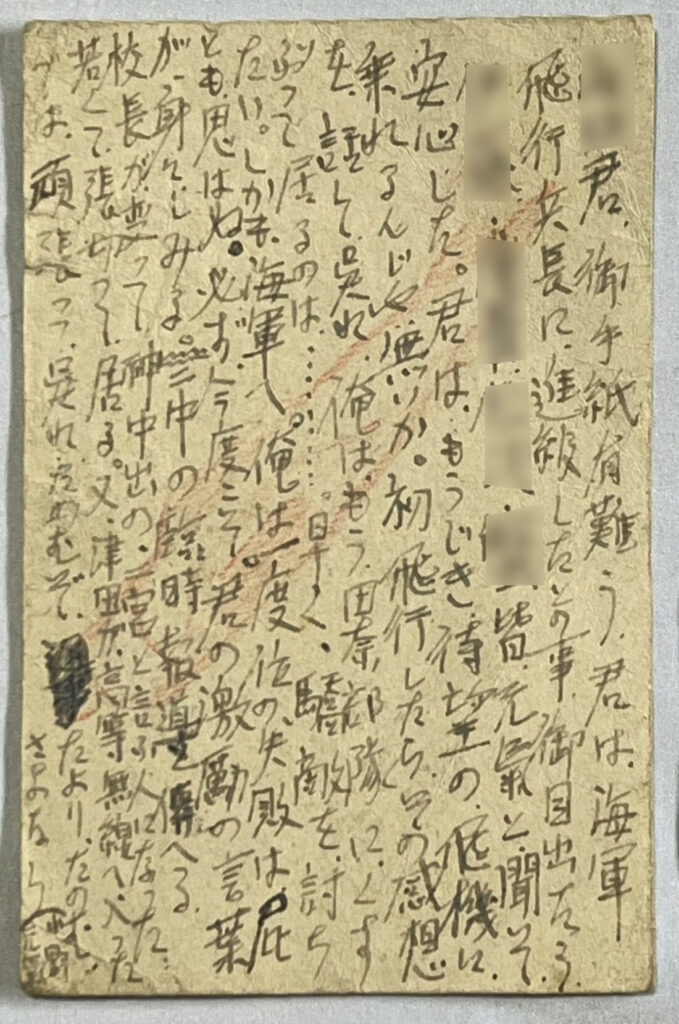 君、御手紙有難う、君は、海軍
飛行兵長に、進級したとの事、御目出たう、
皆元気と聞いて、
安心した。君は、もうじき、待望の、飛機に、
乗れるんじゃ無いか。初飛行したら、その感想
を、話して呉れ、俺は、もう、田奈部隊に、くす
ぶって居るのは、………。早く、驕敵を、討ち
たい。しかも、海軍へ。俺は一度位の、失敗は、屁
とも、思はぬ。必ず、今度こそ。君の激励の言葉
が、身にしみる。二中の臨時報道を傳へる。
校長が変って、神中出の、二宮と言ふ人になった
若くて、張切って、居る。又、津田が、高等無線へ入った
では、頑張って、呉れ、たのむぞ、
たより、たのむ、
さよなら